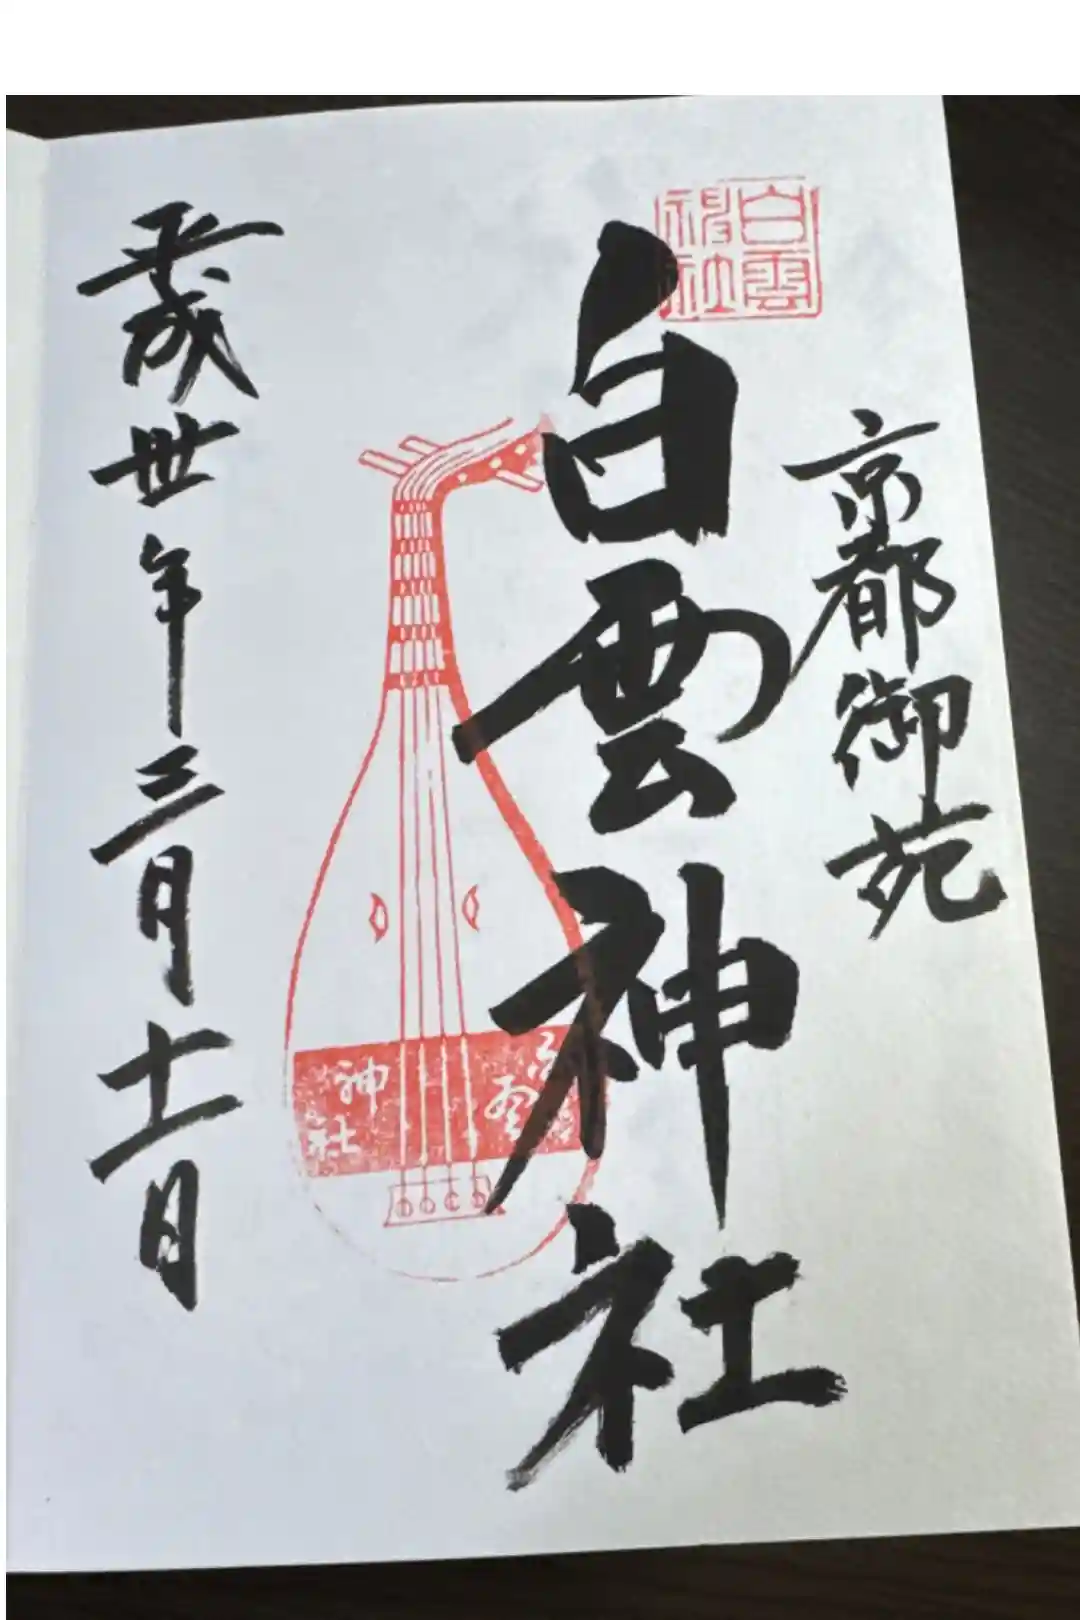 京都御苑
白雲
神社
白雲神社
白雲
神社
平成丗年三月十一日